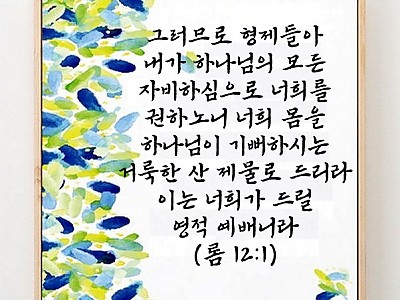 그러므로 형제들아
내가 하나님의 모든
자비하심으로 너희를
권하노니 너희 몸을
하나님이 기뻐하시는
거룩한 산 제물로 드리라
이는 너희가 드릴
영적 예배니라
(롬 12:1)